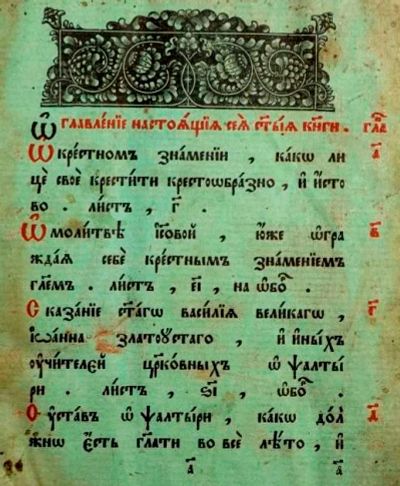 Ѡглавле́нїе настоѧ́щїѧ сеѧ̀ ст҃ы́ѧ кни́ги . гла̑в
Ѡ кре́стномъ зна́менїи , ка́кѡ ли а҃
цѐ своѐ крести́ти крестоѡбра́знѡ , и҆ и҆́сто
во . ли́стъ , г҃ .
Ѡ моли́твѣ і҆с҃овой , ю҆́же ѡ҆гра в҃
жда́ѧ себѐ кре́стнымъ зна́менїемъ
гл҃емъ . ли́стъ , є҃і , на ѡ҆бо̑ .
Сказа́нїе ст҃а́гѡ васи́лїѧ вели́кагѡ , г҃
і҆ѡа́нна златоу́стаго , и҆ и҆ны́хъ
оу҆чи́телей цр҃ко́вныхъ ѡ҆ ѱалты́
ри . ли́стъ , ѕ҃і , ѡ҆бо̑ .
Оу҆ста́въ ѡ҆ ѱалты́ри , ка́кѡ дол д҃
жнѡ є҆́сть гл҃ати во всѐ лѣ́то , и҆
а҃ а҃